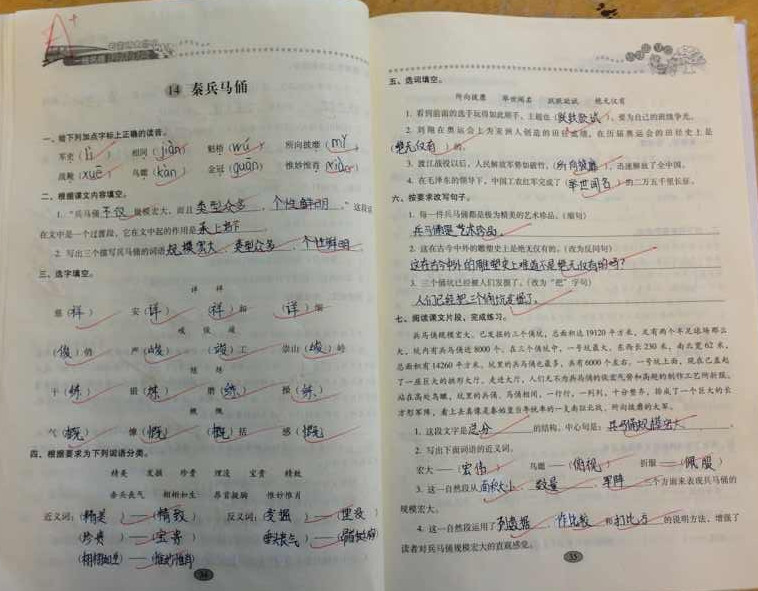 A+
14 秦兵马俑
一、给下列加点字标上正确的读音。
军吏(lì) 相间(jiàn) 魁梧(wú) 所向披靡(mǐ)
战靴(xuē) 鸟瞰(kàn) 金冠(guān) 惟妙惟肖(xiào)
二、根据课文内容填空。
1. “兵马俑不仅规模宏大，而且类型众多、个性鲜明。”这段话
在文中是一个过渡段，它在文中起的作用是承上启下
2. 写出三个描写兵马俑的词语规模宏大、类型众多、个性鲜明
三、选字填空。
详 祥
慈(祥) 安(详) (祥)和 (详)细
峻 俊 竣
(俊)俏 严(峻) (竣)工 崇山(峻)岭
练 炼
干(练) 锻(炼) 磨(练) 操(练)
概 慨
气(概) 慷(慨) (概)括 感(慨)
四、根据要求为下列词语分类。
精美 发掘 珍贵 埋没 宝贵 精致
垂头丧气 栩栩如生 昂首挺胸 惟妙惟肖
近义词：(精美)—(精致) 反义词：(发掘)—(埋没)
(珍贵)—(宝贵) (垂头丧气)—(昂首挺胸)
(栩栩如生)—(惟妙惟肖)
34
五、选词填空。
所向披靡 举世闻名 跃跃欲试 绝无仅有
1. 看到前面的选手玩得如此顺手，王超也(跃跃欲试)，要为自己的班级争光。
2. 刘翔在奥运会上为亚洲人创造的田径成绩，在历届奥运会的田径史上是
(绝无仅有)的。
3. 渡江战役以后，人民解放军势如破竹，(所向披靡)，迅速解放了全中国。
4. 在毛泽东的领导下，中国工农红军完成了(举世闻名)的二万五千里长征。
六、按要求改写句子。
1. 每一件兵马俑都是极为精美的艺术珍品。(缩句)
兵马俑是艺术珍品。
2. 这在古今中外的雕塑史上是绝无仅有的。(改为反问句)
这在古今中外的雕塑史上难道不是绝无仅有的吗？
3. 三个俑坑已经被人们发掘了。(改为“把”字句)
人们已经把三个俑坑发掘了。
七、阅读课文片段，完成练习。
兵马俑规模宏大。已发掘的三个俑坑，总面积达19120平方米，足有两个半足球场那么
大，坑内有兵马俑近8000个。在三个俑坑中，一号坑最大，东西长230米，南北宽62米，
总面积有14260平方米，坑里的兵马俑也最多，共有6000个左右。一号坑上面，现在已盖起
了一座巨大的拱形大厅。走进大厅，人们无不为兵马俑的恢宏气势和高超的制作工艺所折服。
站在高处鸟瞰，坑里的兵俑、马俑相间，一行行，一列列，十分整齐，排成了一个巨大的长
方形军阵，看上去真像是秦始皇当年统率的一支南征北战、所向披靡的大军。
1. 这段文字是总分的结构，中心句是：兵马俑规模宏大。
2. 写出下面词语的近义词。
宏大——(宏伟) 鸟瞰——(俯视) 折服——(佩服)
3. 这一自然段从面积大小、数量、军阵三个方面来表现兵马俑的
规模宏大。
4. 这一自然段运用了列数据、作比较和打比方的说明方法，增强了
读者对兵马俑规模宏大的直观感觉。
35